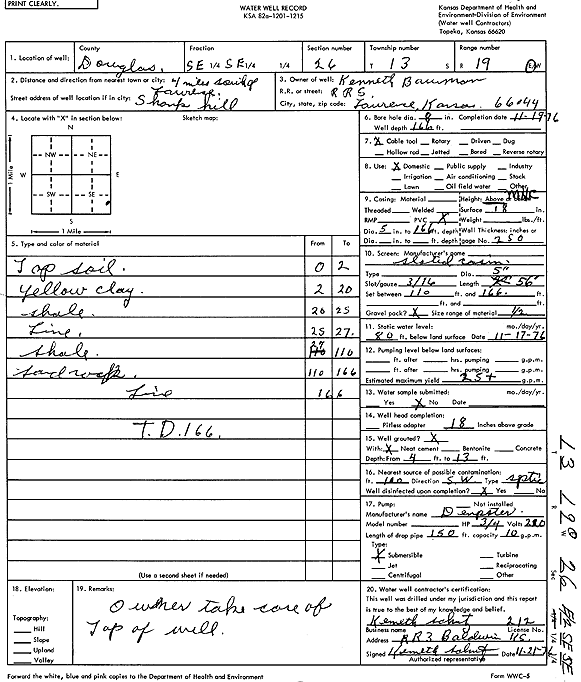 PRINT CLEARLY.
WATER WELL RECORD
KSA 82a-1201-1215
Kansas Department of Health and
Environment-Division of Environment
(Water well Contractors)
Topeka, Kansas 66620
1. Location of well:
County Fraction Section number Township number Range number
Douglas SE 1/4 SE 1/4 1/4 26 T 13 S R 19 E/W
2. Distance and direction from nearest town or city: 4 miles
Street address of well location if in city:
3. Owner of well: Kenneth Bauman
R.R. or street: RR5
City, state, zip code: Lawrence, Kansas. 66044
4. Locate with "X" in section below: Sketch map:
N
NW NE
W E
SW SE
S
1 Mile
1 Mile
6. Bore hole dia. 8 in. Completion date 11-19-76
Well depth 166 ft.
7. X Cable tool Rotary Driven Dug
Hollow rod Jetted Bored Reverse rotary
8. Use: X Domestic Public supply Industry
Irrigation Air conditioning Stock
Lawn Oil field water Other
9. Casing: Material Height: Above or below
Threaded Welded Surface 18 in.
RMP PVC X Weight lbs./ft.
Dia. 5 in. to 166 ft. depth Wall Thickness: inches or
Dia. in. to ft. depth gage No. 250
5. Type and color of material From To
Top soil. 0 2
yellow clay. 2 20
shale. 20 25
Lime. 25 27.
shale. 27 110
sand rock 110 166
166
T.D. 166.
(Use a second sheet if needed)
10. Screen: Manufacturer's name
Type Dia. 5"
Slot/gauze 3/16 Length 56'
Set between 110 ft. and 166. ft.
ft. and ft.
Gravel pack? X Size range of material 1/2
11. Static water level: mo./day/yr.
80 ft. below land surface Date 11-17-76
12. Pumping level below land surfaces:
ft. after hrs. pumping g.p.m.
ft. after hrs. pumping g.p.m.
Estimated maximum yield 25+ g.p.m.
13. Water sample submitted: mo./day/yr.
Yes X No Date
14. Well head completion:
Pitless adapter 18 Inches above grade
15. Well grouted? X
With: X Neat cement Bentonite Concrete
Depth: From 4 ft. to 13 ft.
16. Nearest source of possible contamination:
ft. 100 Direction S.W. Type septic
Well disinfected upon completion? X Yes No
17. Pump: Not installed
Manufacturer's name Dempster.
Model number HP 3/4 Volts 220
Length of drop pipe 150 ft. capacity 10 g.p.m.
Type:
X Submersible Turbine
Jet Reciprocating
Centrifugal Other
18. Elevation:
Topography:
Hill
Slope
Upland
Valley
19. Remarks:
Owner take care of
Top of well.
20. Water well contractor's certification:
This well was drilled under my jurisdiction and this report
is true to the best of my knowledge and belief.
212
Business name License No.
Address RR3 Baldwin
Signed Date 11-21-76
Authorized representative
Forward the white, blue and pink copies to the Department of Health and Environment
Form WWC-5